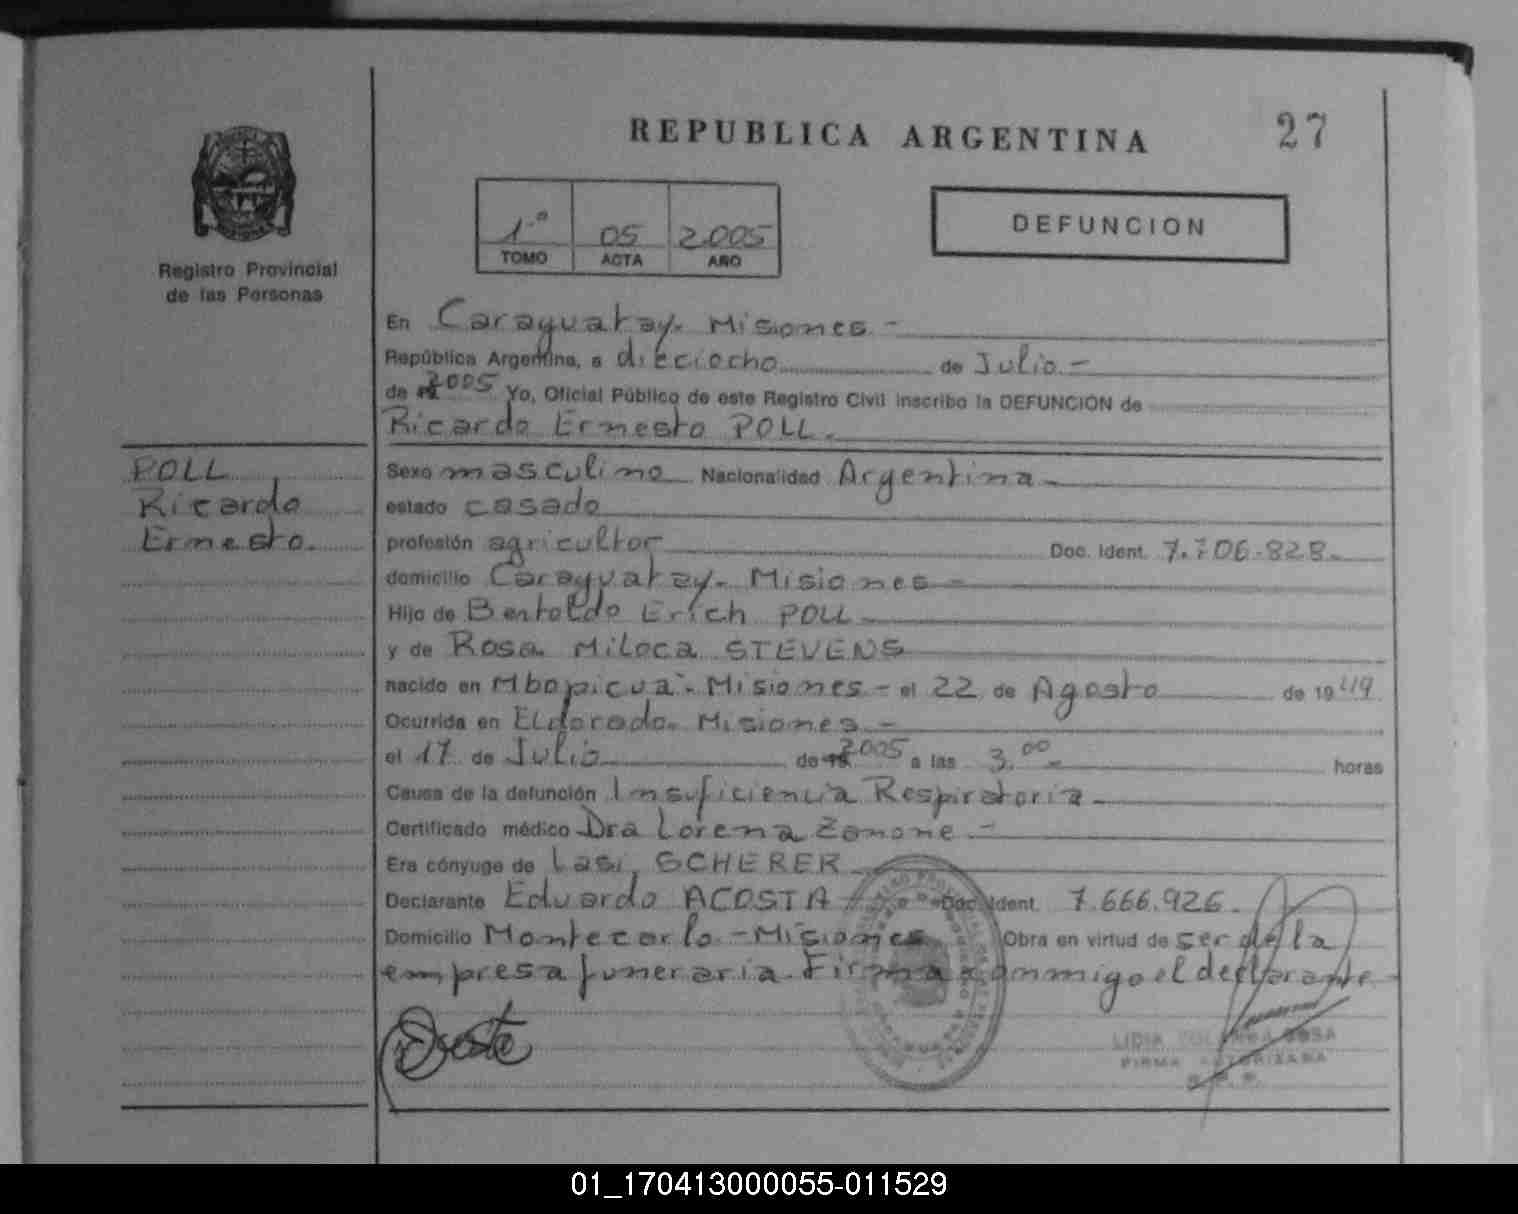 REPUBLICA ARGENTINA
27
1.º 05 2005
TOMO ACTA AÑO
DEFUNCION
Registro Provincial
de las Personas
En Caraguatay. Misiones.-
República Argentina, a dieciocho de Julio.-
de 19 2005 Yo, Oficial Público de este Registro Civil inscribo la DEFUNCION de
Ricardo Ernesto POLL.
POLL
Ricardo
Ernesto.
Sexo masculino Nacionalidad Argentina.
estado casado
profesión agricultor Doc. Ident. 7.706.828.
domicilio Caraguatay. Misiones-
Hijo de Bertoldo Erich POLL
y de Rosa Miloca STEVENS
nacido en Mbopicuá-Misiones- el 22 de Agosto de 1949
Ocurrida en Eldorado. Misiones-
el 17 de Julio de 19 2005 a las 3.00 horas
Causa de la defunción Insuficiencia Respiratoria.
Certificado médico Dra Lorena Zanone.-
Era cónyuge de Lasi, SCHERER
Declarante Eduardo ACOSTA Doc. Ident. 7.666.926.
Domicilio Montecarlo-Misiones Obra en virtud de ser de la
empresa funeraria. Firma conmigo el declarante-
LIDIA SOSA
FIRMA AUTORIZADA
01_170413000055-011529